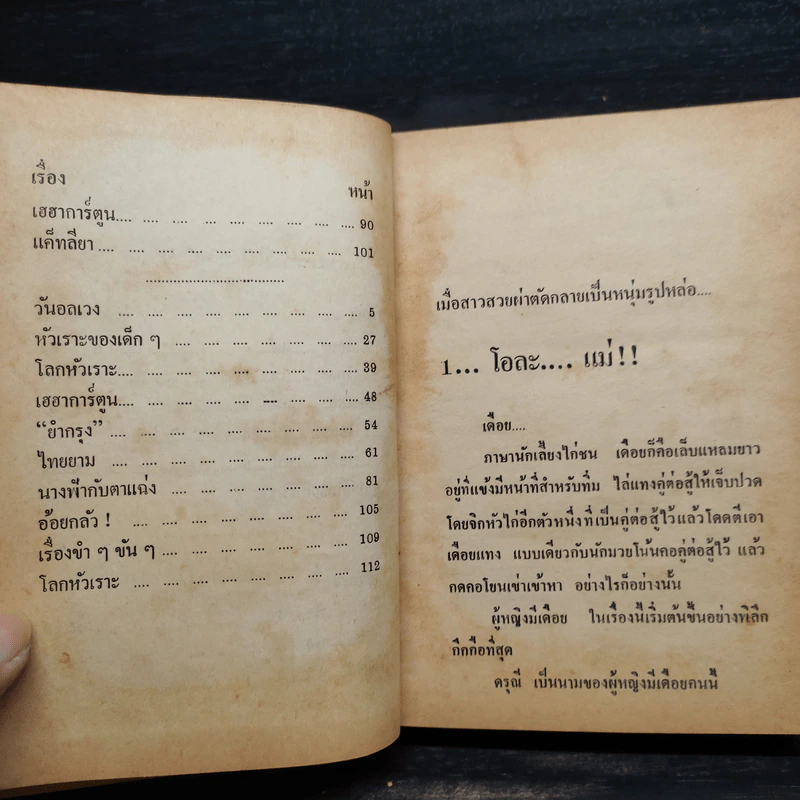 เรื่อง
หน้า
เฮฮาการ์ตูน.... .... .... .... .... .... .... .... .... 90
แค็ทลียา .... .... .... .... .... .... .... .... .... 101
..................................
วันอลเวง .... .... .... .... .... .... .... .... 5
หัวเราะของเด็ก ๆ .... .... .... .... .... .... .... 27
โลกหัวเราะ.... .... .... .... .... .... .... .... 39
เฮฮาการ์ตูน.... .... .... .... .... .... .... .... 48
“ยำกรุง” .... .... .... .... .... .... .... .... 54
ไทยยาม .... .... .... .... .... .... .... .... 61
นางฟ้ากับตาแฉ่ง .... .... .... .... .... .... 81
อ้อยกลัว ! .... .... .... .... .... .... .... 105
เรื่องขำ ๆ ขัน ๆ .... .... .... .... .... .... .... 109
โลกหัวเราะ .... .... .... .... .... .... .... 112
เมื่อสาวสวยผ่าตัดกลายเป็นหนุ่มรูปหล่อ....
1... โอละ.... แม่!!
เดือย....
ภาษานักเลี้ยงไก่ชน เดือยก็คือเล็บแหลมยาว
อยู่ที่แข้งมีหน้าที่สำหรับทิ่ม ไล่แทงคู่ต่อสู้ให้เจ็บปวด
โดยจิกหัวไก่อีกตัวหนึ่งที่เป็นคู่ต่อสู้ไว้แล้วโดดตีเอา
เดือยแทง แบบเดียวกับนักมวยโน้นคอคู่ต่อสู้ไว้ แล้ว
กดคอโยนเข่าเข้าหา อย่างไรก็อย่างนั้น
ผู้หญิงมีเดือย ในเรื่องนี้เริ่มต้นขึ้นอย่างพิลึก
กึกกือที่สุด
ดรุณี เป็นนามของผู้หญิงมีเดือยคนนี้